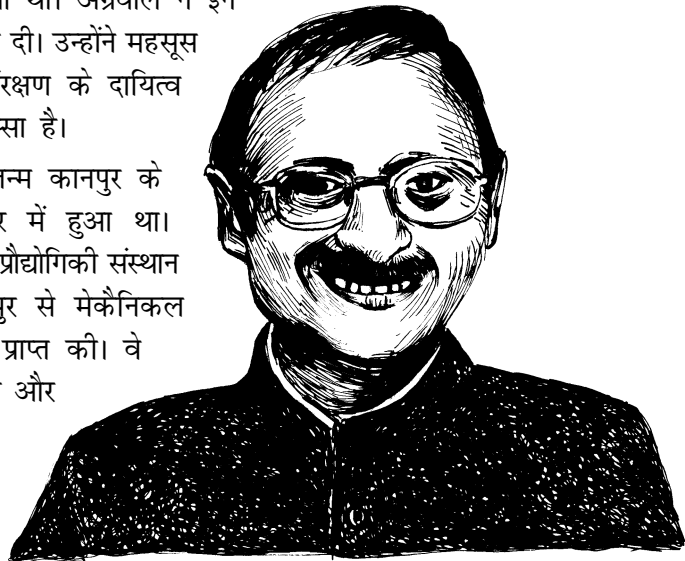 था। अग्रवाल ने इन
दी। उन्होंने महसूस
रक्षण के दायित्व
सा है।
जन्म कानपुर के
में हुआ था।
प्रौद्योगिकी संस्थान
पुर से मेकैनिकल
प्राप्त की। वे
और